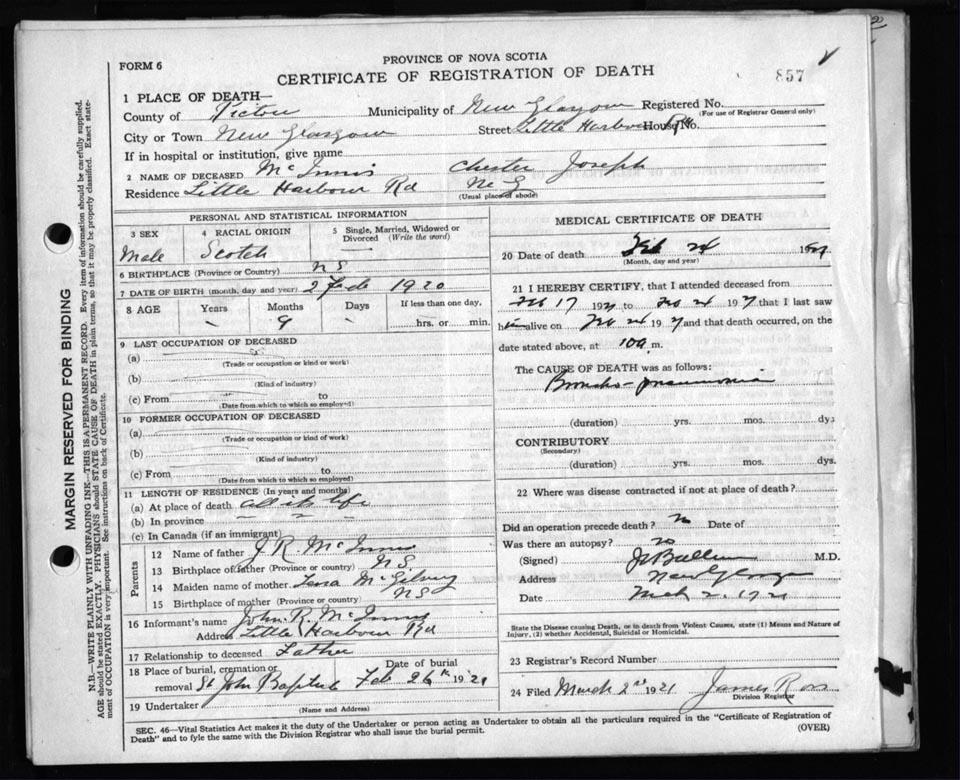 FORM 6
PROVINCE OF NOVA SCOTIA
CERTIFICATE OF REGISTRATION OF DEATH
857
1 PLACE OF DEATH—
County of Pictou Municipality of New Glasgow Registered No.
(For use of Registrar General only)
City or Town New Glasgow Street Little Harbour Rd House No.
If in hospital or institution, give name
2 NAME OF DECEASED McInnis Chester Joseph
Residence Little Harbour Rd N. G
(Usual place of abode)
PERSONAL AND STATISTICAL INFORMATION
3 SEX 4 RACIAL ORIGIN 5 Single, Married, Widowed or Divorced (Write the word)
Male Scotch
6 BIRTHPLACE (Province or Country) N S
7 DATE OF BIRTH (month, day and year) 1920
8 AGE Years Months Days If less than one day,
– 9 – hrs. or min.
9 LAST OCCUPATION OF DECEASED
(a)
(Trade or occupation or kind of work)
(b)
(Kind of industry)
(c) From to
(Date from which to which so employed)
10 FORMER OCCUPATION OF DECEASED
(a)
(Trade or occupation or kind of work)
(b)
(Kind of industry)
(c) From to
(Date from which to which so employed)
11 LENGTH OF RESIDENCE (In years and months)
(a) At place of death all its life
(b) In province
(c) In Canada (if an immigrant)
Parents
12 Name of father J. R. McInnis
13 Birthplace of father (Province or country) N.S.
14 Maiden name of mother
15 Birthplace of mother (Province or country) N S
16 Informant's name John R. McInnis
Address Little Harbour Rd
17 Relationship to deceased Father
18 Place of burial, cremation or Date of burial
removal St John Baptist Feb 26th 1921
19 Undertaker
(Name and Address)
MEDICAL CERTIFICATE OF DEATH
20 Date of death Feb 24 1921
(Month, day and year)
21 I HEREBY CERTIFY, that I attended deceased from
Feb 17 1921 to Feb 24 1921 that I last saw
him alive on Feb 24 1921 and that death occurred, on the
date stated above, at 10 a m.
The CAUSE OF DEATH was as follows:
Broncho-pneumonia
(duration) yrs. mos. dys
CONTRIBUTORY
(Secondary)
(duration) yrs. mos. dys.
22 Where was disease contracted if not at place of death?
Did an operation precede death? no Date of
Was there an autopsy? no
(Signed) M.D.
Address New Glasgow
Date March 2. 1921
State the Disease causing Death, or in death from Violent Causes, state (1) Means and Nature of
Injury, (2) whether Accidental, Suicidal or Homicidal.
23 Registrar's Record Number
24 Filed March 2nd 1921 James Ross
Division Registrar
SEC. 46—Vital Statistics Act makes it the duty of the Undertaker or person acting as Undertaker to obtain all the particulars required in the "Certificate of Registration of
Death" and to fyle the same with the Division Registrar who shall issue the burial permit. (OVER)
MARGIN RESERVED FOR BINDING
N.B.—WRITE PLAINLY WITH UNFADING INK.—THIS IS A PERMANENT RECORD. Every item of information should be carefully supplied.
AGE should be stated EXACTLY. PHYSICIANS should STATE CAUSE OF DEATH in plain terms, so that it may be properly classified. Exact state-
ment of OCCUPATION is very important. See instructions on back of Certificate.